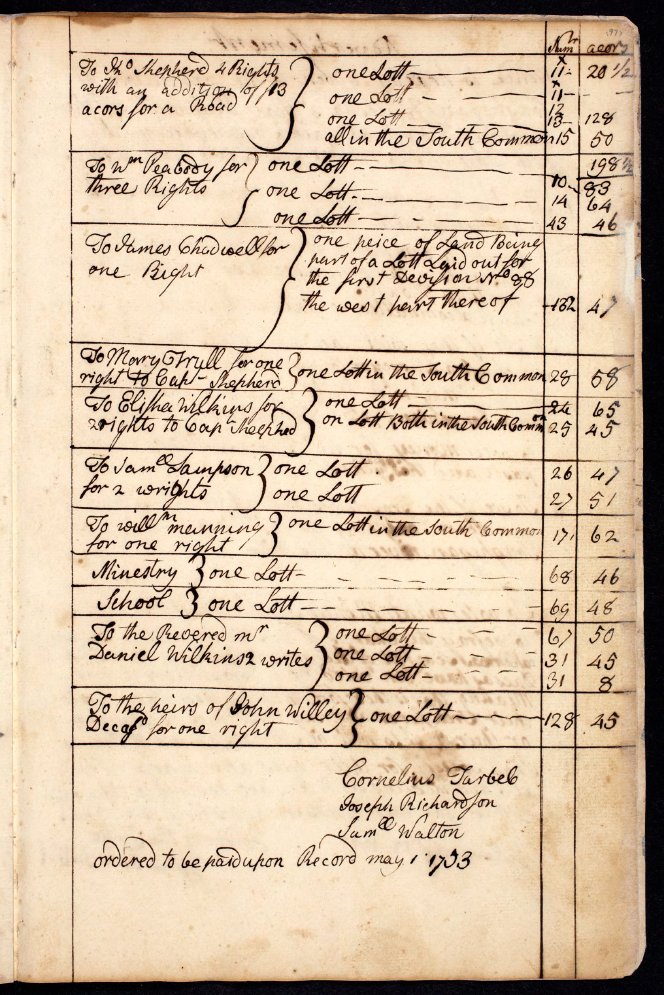 (97)
Numbr acors
To Jho Shepherd 4 Rights one Lott 11 20 1/2
with an addition off 13 one Lott 11
acors for a Road one Lott 12 13 128
all in the South Common 15 50
198 1/2
To Wm Peabody for one Lott 10 83
three Rights one Lott 14 64
one Lott 43 46
To James Chadwell for one peice of Land Being
one Right part of a Lott Laid out for
the first Devision No 88
the west part thereof 132 47
To Marry Thyll for one
right to Capt Shepherd one Lott in the South Common 28 58
To Elisha Wilkins for one Lott 24 65
2 rights to Capt Shephed on Lott Both in the South Common 25 45
To Samll Sampson one Lott 26 47
for 2 wrights one Lott 27 51
To willm manning one Lott in the South Common 17 62
for one right
Minestry one Lott 68 46
School one Lott 69 48
To the Revered mr one Lott 67 50
Daniel Wilkins 2 writes one Lott 31 45
one Lott 31 8
To the heirs of John Willey one Lott 128 45
Decasd for one right
Cornelius Tarbel
Joseph Richardson
Samll Walton
ordered to be paid upon Record may 1 1733